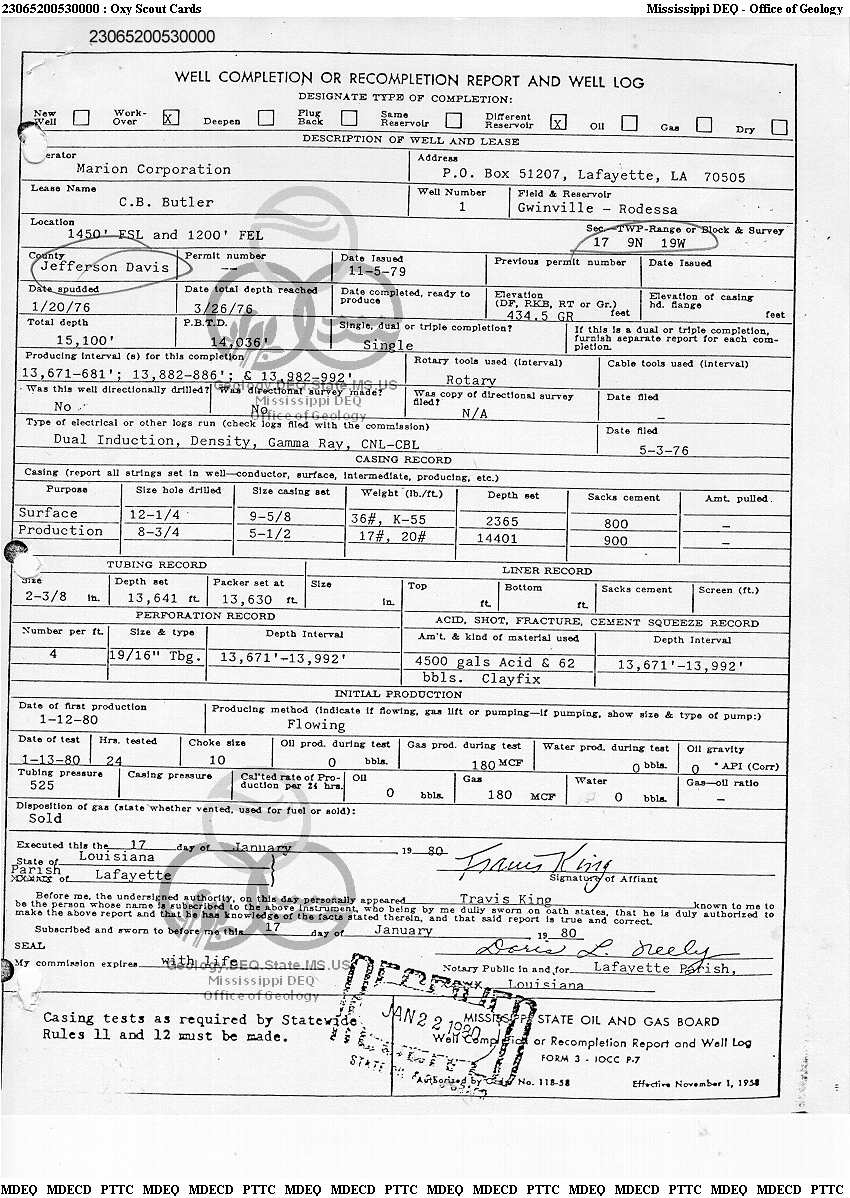 23065200530000 : Oxy Scout Cards Mississippi DEQ - Office of Geology
23065200530000
WELL COMPLETION OR RECOMPLETION REPORT AND WELL LOG
DESIGNATE TYPE OF COMPLETION:
New Well Work-Over X Deepen Plug Back Same Reservoir Different Reservoir X Oil Gas Dry
DESCRIPTION OF WELL AND LEASE
erator Address
Marion Corporation P.O. Box 51207, Lafayette, LA 70505
Lease Name Well Number Field & Reservoir
C.B. Butler 1 Gwinville - Rodessa
Location Sec.-TWP-Range or Block & Survey
1450' FSL and 1200' FEL 17 9N 19W
County Permit number Date Issued Previous permit number Date Issued
Jefferson Davis -- 11-5-79
Date spudded Date total depth reached Date completed, ready to produce Elevation (DF, RKB, RT or Gr.) feet Elevation of casing hd. flange feet
1/20/76 3/26/76 434.5 GR
Total depth P.B.T.D. Single, dual or triple completion? If this is a dual or triple completion, furnish separate report for each completion.
15,100' 14,036' Single
Producing interval (s) for this completion Rotary tools used (interval) Cable tools used (interval)
13,671-681'; 13,882-886'; & 13,982-992' Rotary
Geology.DEQ.State.MS.US
Was this well directionally drilled? Was directional survey made? Was copy of directional survey filed? Date filed
No No N/A -
Mississippi DEQ
Office of Geology
Type of electrical or other logs run (check logs filed with the commission) Date filed
Dual Induction, Density, Gamma Ray, CNL-CBL 5-3-76
CASING RECORD
Casing (report all strings set in well—conductor, surface, intermediate, producing, etc.)
Purpose Size hole drilled Size casing set Weight (lb./ft.) Depth set Sacks cement Amt. pulled
Surface 12-1/4 9-5/8 36#, K-55 2365 800 -
Production 8-3/4 5-1/2 17#, 20# 14401 900 -
TUBING RECORD LINER RECORD
Size Depth set Packer set at Size Top Bottom Sacks cement Screen (ft.)
2-3/8 in. 13,641 ft. 13,630 ft. in. ft. ft.
PERFORATION RECORD ACID, SHOT, FRACTURE, CEMENT SQUEEZE RECORD
Number per ft. Size & type Depth Interval Am't. & kind of material used Depth Interval
4 19/16" Tbg. 13,671'-13,992' 4500 gals Acid & 62 13,671'-13,992'
bbls. Clayfix
INITIAL PRODUCTION
Date of first production Producing method (indicate if flowing, gas lift or pumping—if pumping, show size & type of pump:)
1-12-80 Flowing
Date of test Hrs. tested Choke size Oil prod. during test Gas prod. during test Water prod. during test Oil gravity
1-13-80 24 10 0 bbls. 180 MCF 0 bbls. 0 ° API (Corr)
Tubing pressure Casing pressure Cal'ted rate of Production per 24 hrs. Oil Gas Water Gas—oil ratio
525 0 bbls. 180 MCF 0 bbls. -
Disposition of gas (state whether vented, used for fuel or sold):
Sold
Executed this the 17 day of January 19 80
State of Louisiana Travis King
Parish of Lafayette Signature of Affiant
Before me, the undersigned authority, on this day personally appeared Travis King known to me to
be the person whose name is subscribed to the above instrument, who being by me dully sworn on oath states, that he is duly authorized to
make the above report and that he has knowledge of the facts stated therein, and that said report is true and correct.
Subscribed and sworn to before me this 17 day of January 19 80
SEAL Doris L. Neely
My commission expires with life Notary Public in and for Lafayette Parish,
Geology.DEQ.State.MS.US
Mississippi DEQ Louisiana
Office of Geology
RECEIVED
JAN 22 1980
STATE OIL
Casing tests as required by Statewide MISSISSIPPI STATE OIL AND GAS BOARD
Rules 11 and 12 must be made. Well Completion or Recompletion Report and Well Log
FORM 3 - IOCC P-7
Authorized by No. 118-58 Effective November 1, 1958
MDEQ MDECD PTTC MDEQ MDECD PTTC MDEQ MDECD PTTC MDEQ MDECD PTTC MDEQ MDECD PTTC MDEQ MDECD PTTC